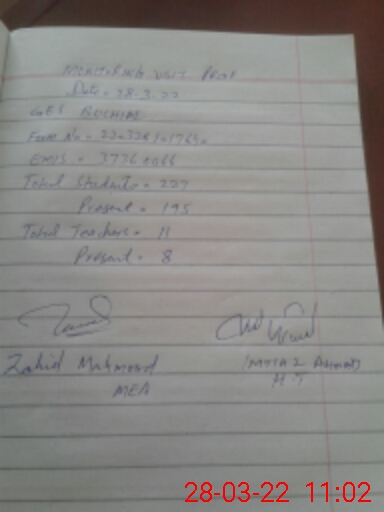 MONITORING VISIT PROF
Date = 28-3-22
GES
Form No =
EMIS =
Total Students = 227
Present = 195
Total Teachers = 11
Present = 8
Zahid Mahmood
MEA
IMTIAZ AHMAD
H T
28-03-22 11:02